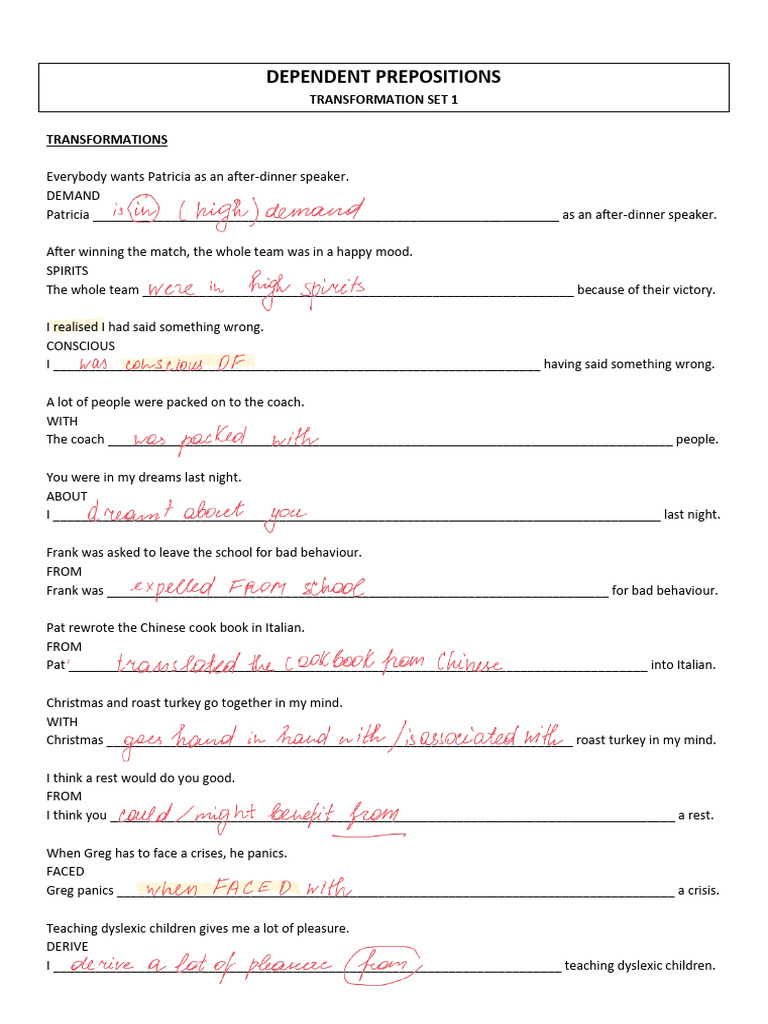 DEPENDENT PREPOSITIONS
TRANSFORMATION SET 1
TRANSFORMATIONS
Everybody wants Patricia as an after-dinner speaker.
DEMAND
Patricia is in (high) demand as an after-dinner speaker.
After winning the match, the whole team was in a happy mood.
SPIRITS
The whole team were in high spirits because of their victory.
I realised I had said something wrong.
CONSCIOUS
I was conscious OF having said something wrong.
A lot of people were packed on to the coach.
WITH
The coach was packed with people.
You were in my dreams last night.
ABOUT
I dreamt about you last night.
Frank was asked to leave the school for bad behaviour.
FROM
Frank was expelled FROM school for bad behaviour.
Pat rewrote the Chinese cook book in Italian.
FROM
Pat translated the cookbook from Chinese into Italian.
Christmas and roast turkey go together in my mind.
WITH
Christmas goes hand in hand with/is associated with roast turkey in my mind.
I think a rest would do you good.
FROM
I think you could/might benefit from a rest.
When Greg has to face a crises, he panics.
FACED
Greg panics when FACED with a crisis.
Teaching dyslexic children gives me a lot of pleasure.
DERIVE
I derive a lot of pleasure from teaching dyslexic children.